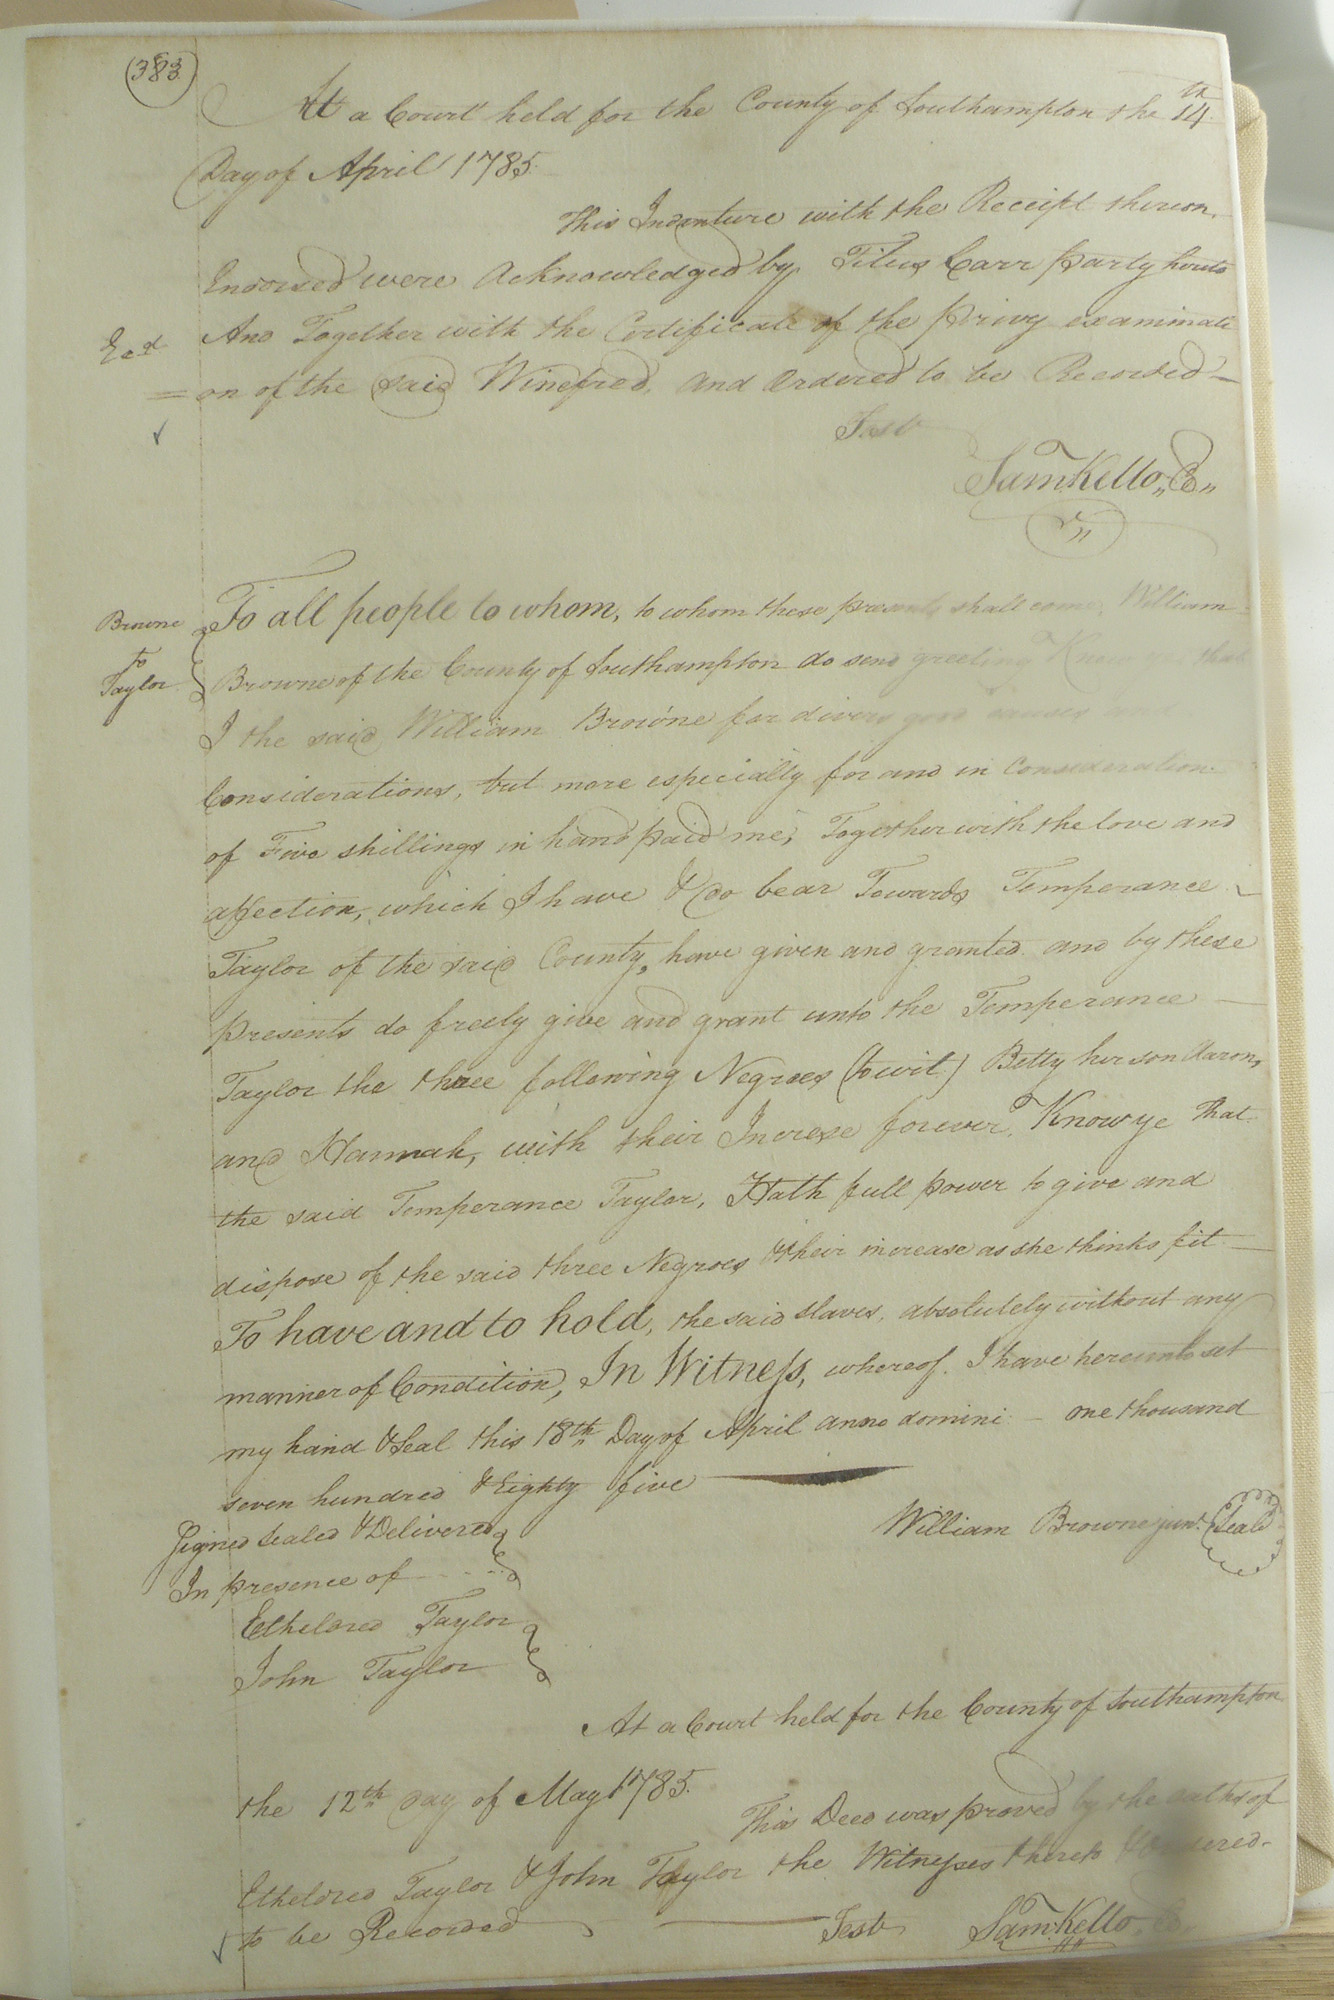 383
At a Court held for the County of Southampton the 14th
Day of April 1785.
This Indenture with the Receipt thereon
Endorsed were Acknowledged by Titus Carr party hereto
And Together with the Certificate of the privy examinati
Exd
= on of the said Winefred, and Ordered to be Recorded —
Test
Sam Kello,, C,,
Browne
to
Taylor
To all people to whom, to whom these presents shall come, William
Browne of the County of Southampton do send greeting Know ye that
I the said William Browne for divers good causes and
Considerations, but more especially for and in Consideration
of Five shillings in hand paid me, Together with the love and
affection, which I have & do bear Towards Temperance
Taylor of the said County, have given and granted and by these
presents do freely give and grant unto the Temperance —
Taylor the three following Negroes (to wit) Betty her son Aaron,
and Hannah, with their Increse forever. Know ye That
the said Temperance Taylor, Hath full power to give and
dispose of the said three Negroes & their increase as she thinks fit —
To have and to hold, the said slaves, absolutely without any
manner of Condition, In Witness, whereof. I have hereunto set
my hand & Seal this 18th Day of April anno domini — one thousand
seven hundred & Eighty five
William Browne junr. Seal
Signed Sealed & Delivered
In presence of
Etheldred Taylor
John Taylor
At a Court held for the County of Southampton
the 12th day of May 1785.
This Deed was proved by the oaths of
Etheldred Taylor & John Taylor the Witnesses thereto & Ordered
to be Recorded
Test Sam Kello C.